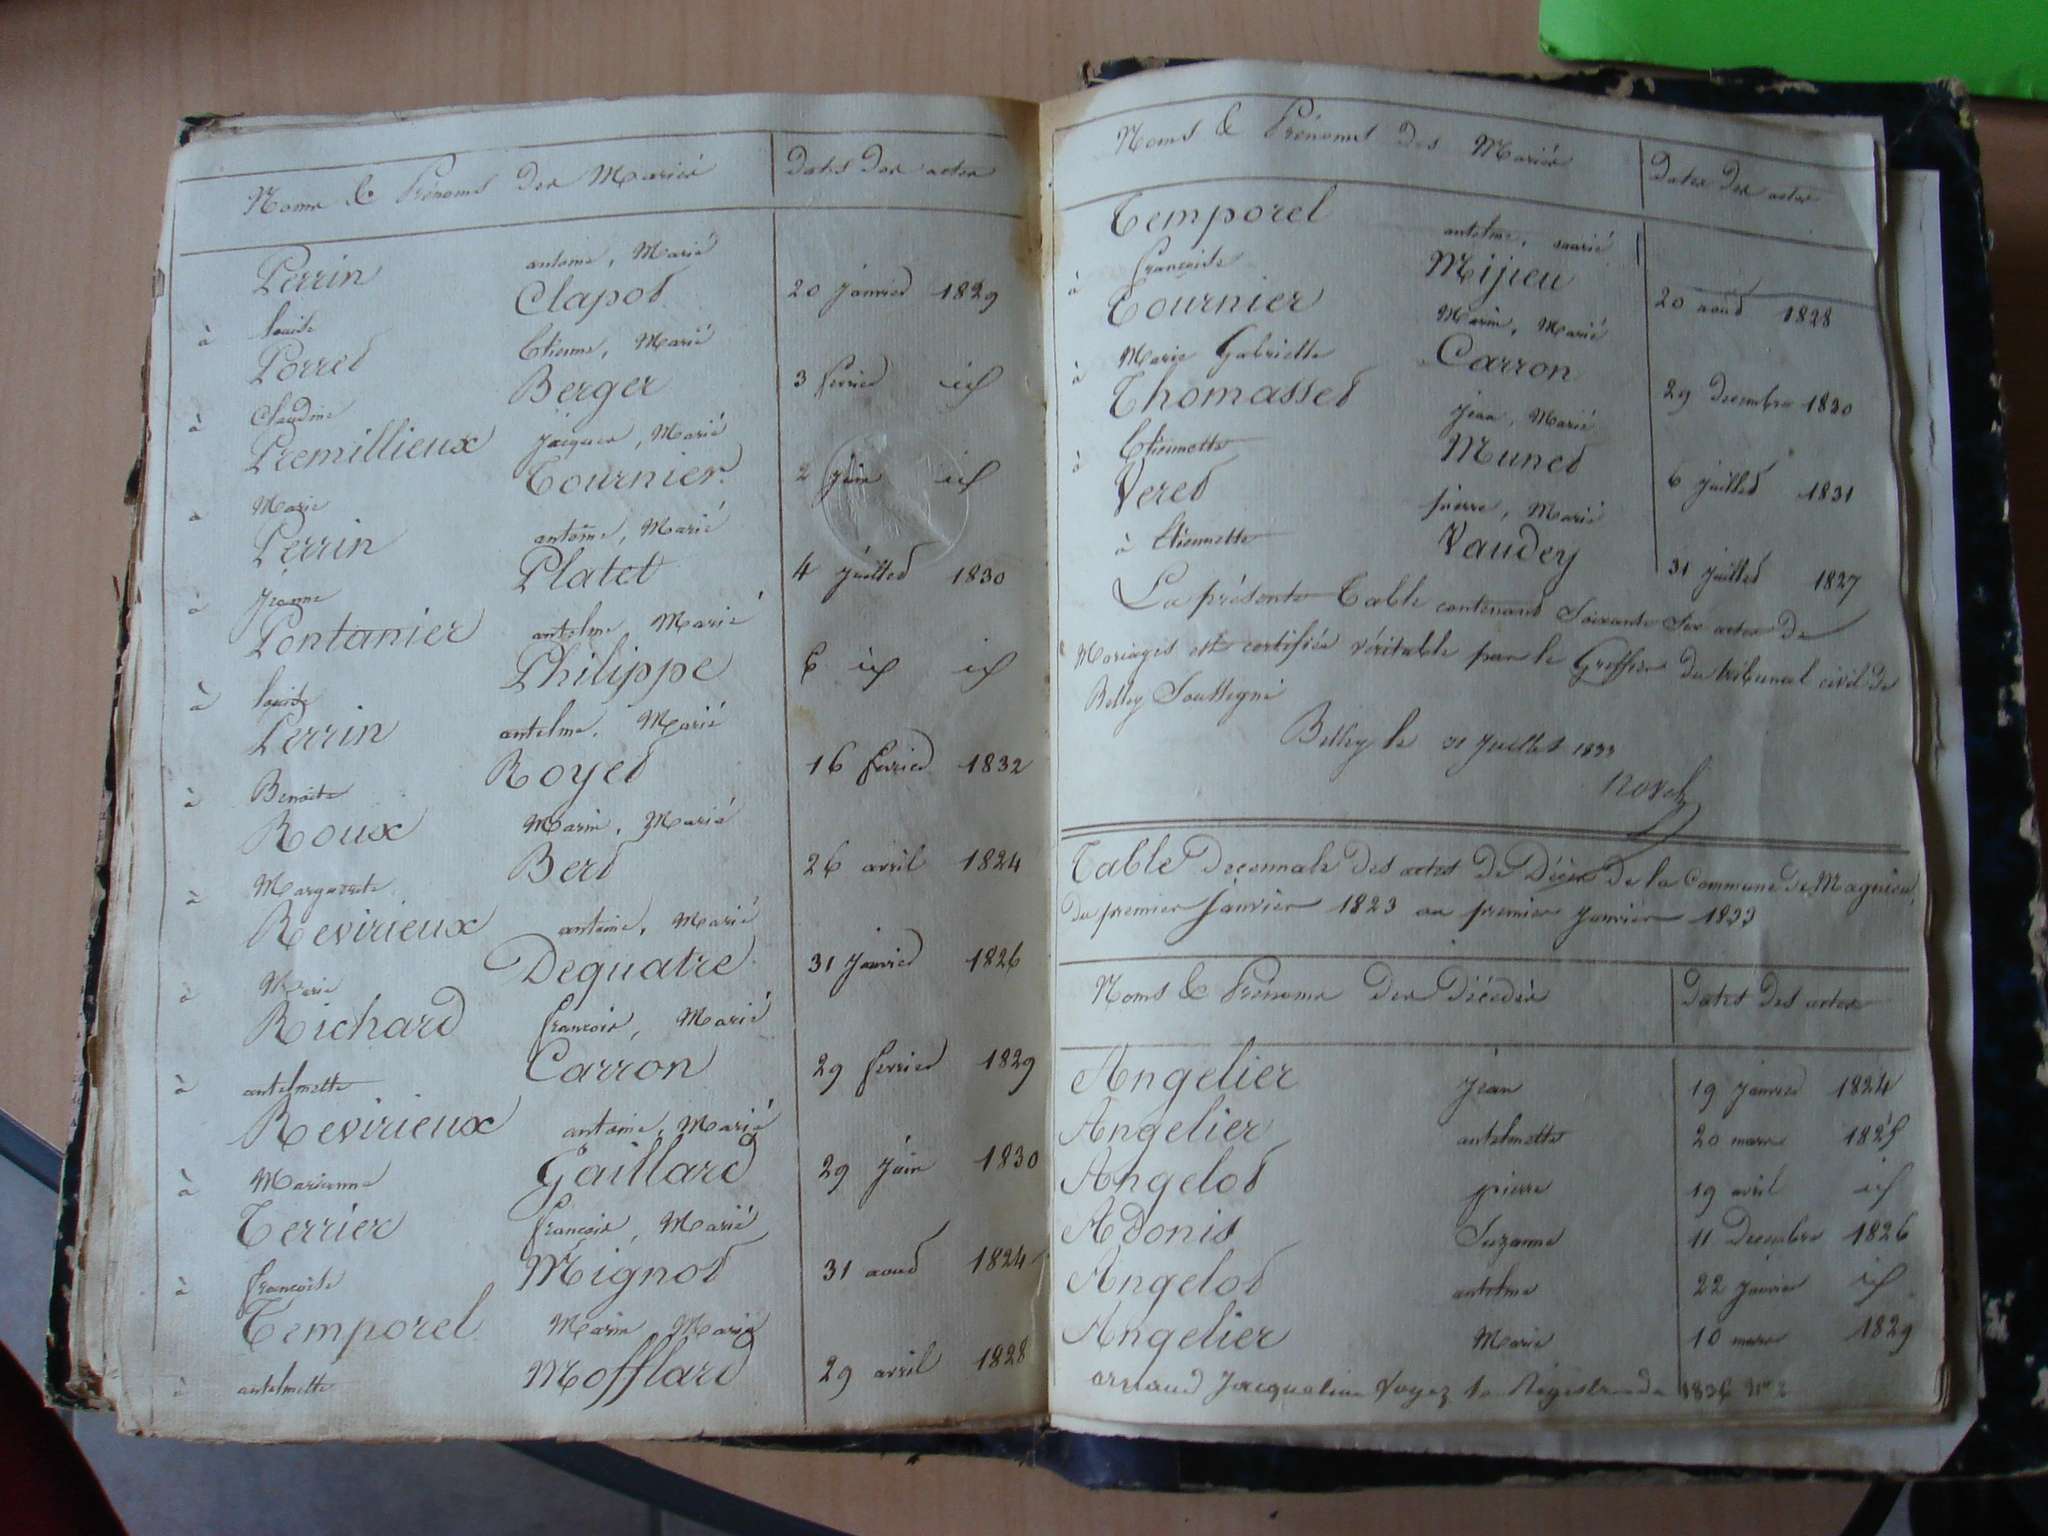 Noms & Prénoms des Mariés Dates des actes
Perrin antoine, Marié
à louise Clapot 20 janvier 1829
Porret Etienne, Marié
à Claudine Berger 3 fevrier id
Premillieux jacques, Marié
à Marie Tournier 2 juin id
Perrin antoine, Marié
à jeanne Platet 4 juillet 1830
Pontanier antelme Marié
à louise Philippe 6 id id
Perrin antelme, Marié
à Benoite Royet 16 fevrier 1832
Roux Marin, Marié
à Marguerite Bert 26 avril 1824
Revirieux antoine, Marié
à Marie Dequatre 31 janvier 1826
Richard françois, Marié
à antelmette Carron 29 fevrier 1829
Revirieux antoine, Marié
à Marianne Gaillard 29 juin 1830
Terrier françois, Marié
à françoise Mignot 31 aout 1824
Temporel Marin Marié
à antelmette Mofflard 29 avril 1828
Noms & Prénoms des Mariés Dates des actes
Temporel antelme, marié
à françoise Mijieu 20 aout 1828
Tournier Marin, Marié
à Marie Gabrielle Carron 29 decembre 1830
Thomasset jean, Marié
à Etiennette Munet 6 juillet 1831
Veret pierre, Marié
à Etiennette Vaudey 31 juillet 1827
La présente Table contenant Soixante Six actes de
Mariages est certifiée véritable par le Greffier du tribunal civil de
Belley Soussigné
Belley le 31 juillet 1833
Table Decennale des actes de Décès de la Commune de Magnieu,
du premier janvier 1823 au premier janvier 1833
Noms & Prénoms des Décédés Dates des actes
Angelier jean 19 janvier 1824
Angelier antelmette 20 mars 1825
Angelot pierre 19 avril id
Adonis Suzanne 11 Decembre 1826
Angelot antelme 22 janvier id
Angelier Marie 10 mars 1829
arnaud Jacqueline Voyez le Régistre de